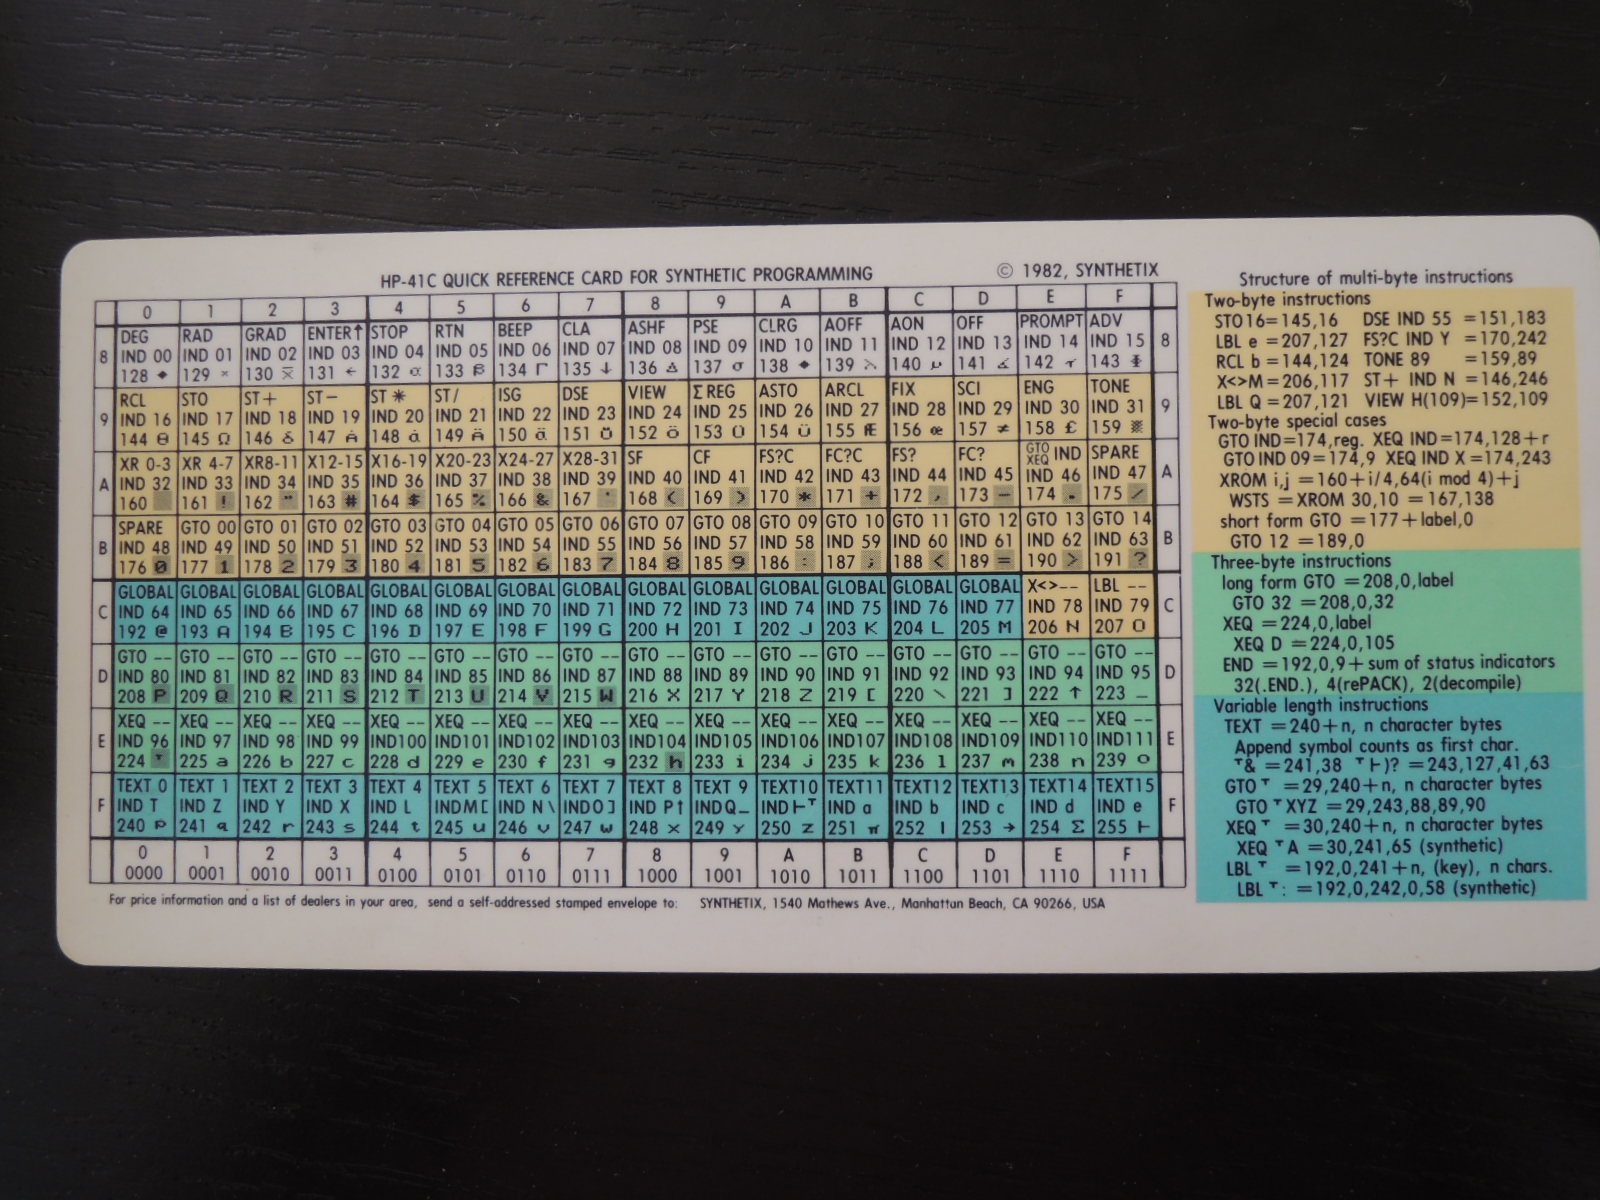 HP-41C QUICK REFERENCE CARD FOR SYNTHETIC PROGRAMMING © 1982, SYNTHETIX
0 1 2 3 4 5 6 7 8 9 A B C D E F
DEG RAD GRAD ENTER↑ STOP RTN BEEP CLA ASHF PSE CLRG AOFF AON OFF PROMPT ADV
8 IND 00 IND 01 IND 02 IND 03 IND 04 IND 05 IND 06 IND 07 IND 08 IND 09 IND 10 IND 11 IND 12 IND 13 IND 14 IND 15 8
128 ◆ 129 × 130 x̄ 131 ← 132 α 133 β 134 Γ 135 ↓ 136 Δ 137 σ 138 ◆ 139 λ 140 μ 141 ∡ 142 τ 143 Φ
RCL STO ST+ ST− ST* ST/ ISG DSE VIEW ΣREG ASTO ARCL FIX SCI ENG TONE
9 IND 16 IND 17 IND 18 IND 19 IND 20 IND 21 IND 22 IND 23 IND 24 IND 25 IND 26 IND 27 IND 28 IND 29 IND 30 IND 31 9
144 θ 145 Ω 146 δ 147 Å 148 å 149 Ä 150 ä 151 Ö 152 ö 153 Ü 154 ü 155 Æ 156 œ 157 ≠ 158 £ 159 ▒
XR 0-3 XR 4-7 XR8-11 X12-15 X16-19 X20-23 X24-27 X28-31 SF CF FS?C FC?C FS? FC? GTO XEQ IND SPARE
A IND 32 IND 33 IND 34 IND 35 IND 36 IND 37 IND 38 IND 39 IND 40 IND 41 IND 42 IND 43 IND 44 IND 45 IND 46 IND 47 A
160 161 ! 162 " 163 # 164 $ 165 % 166 & 167 ' 168 ( 169 ) 170 * 171 + 172 , 173 − 174 . 175 /
SPARE GTO 00 GTO 01 GTO 02 GTO 03 GTO 04 GTO 05 GTO 06 GTO 07 GTO 08 GTO 09 GTO 10 GTO 11 GTO 12 GTO 13 GTO 14
B IND 48 IND 49 IND 50 IND 51 IND 52 IND 53 IND 54 IND 55 IND 56 IND 57 IND 58 IND 59 IND 60 IND 61 IND 62 IND 63 B
176 0 177 1 178 2 179 3 180 4 181 5 182 6 183 7 184 8 185 9 186 : 187 ; 188 < 189 = 190 > 191 ?
GLOBAL GLOBAL GLOBAL GLOBAL GLOBAL GLOBAL GLOBAL GLOBAL GLOBAL GLOBAL GLOBAL GLOBAL GLOBAL GLOBAL X<>-- LBL --
C IND 64 IND 65 IND 66 IND 67 IND 68 IND 69 IND 70 IND 71 IND 72 IND 73 IND 74 IND 75 IND 76 IND 77 IND 78 IND 79 C
192 @ 193 A 194 B 195 C 196 D 197 E 198 F 199 G 200 H 201 I 202 J 203 K 204 L 205 M 206 N 207 O
GTO -- GTO -- GTO -- GTO -- GTO -- GTO -- GTO -- GTO -- GTO -- GTO -- GTO -- GTO -- GTO -- GTO -- GTO -- GTO --
D IND 80 IND 81 IND 82 IND 83 IND 84 IND 85 IND 86 IND 87 IND 88 IND 89 IND 90 IND 91 IND 92 IND 93 IND 94 IND 95 D
208 P 209 Q 210 R 211 S 212 T 213 U 214 V 215 W 216 X 217 Y 218 Z 219 [ 220 \ 221 ] 222 ↑ 223 _
XEQ -- XEQ -- XEQ -- XEQ -- XEQ -- XEQ -- XEQ -- XEQ -- XEQ -- XEQ -- XEQ -- XEQ -- XEQ -- XEQ -- XEQ -- XEQ --
E IND 96 IND 97 IND 98 IND 99 IND100 IND101 IND102 IND103 IND104 IND105 IND106 IND107 IND108 IND109 IND110 IND111 E
224 ᵀ 225 a 226 b 227 c 228 d 229 e 230 f 231 g 232 h 233 i 234 j 235 k 236 l 237 m 238 n 239 o
TEXT 0 TEXT 1 TEXT 2 TEXT 3 TEXT 4 TEXT 5 TEXT 6 TEXT 7 TEXT 8 TEXT 9 TEXT10 TEXT11 TEXT12 TEXT13 TEXT14 TEXT15
F IND T IND Z IND Y IND X IND L INDM[ IND N\ INDO] IND P↑ INDQ_ IND⊢ᵀ IND a IND b IND c IND d IND e F
240 p 241 q 242 r 243 s 244 t 245 u 246 v 247 w 248 x 249 y 250 z 251 π 252 | 253 → 254 Σ 255 ⊢
0 1 2 3 4 5 6 7 8 9 A B C D E F
0000 0001 0010 0011 0100 0101 0110 0111 1000 1001 1010 1011 1100 1101 1110 1111
For price information and a list of dealers in your area, send a self-addressed stamped envelope to: SYNTHETIX, 1540 Mathews Ave., Manhattan Beach, CA 90266, USA
Structure of multi-byte instructions
Two-byte instructions
STO 16=145,16 DSE IND 55 =151,183
LBL e =207,127 FS?C IND Y =170,242
RCL b =144,124 TONE 89 =159,89
X<>M =206,117 ST+ IND N =146,246
LBL Q =207,121 VIEW H(109)=152,109
Two-byte special cases
GTO IND=174,reg. XEQ IND=174,128+r
GTO IND 09=174,9 XEQ IND X =174,243
XROM i,j =160+i/4,64(i mod 4)+j
WSTS =XROM 30,10 =167,138
short form GTO =177+label,0
GTO 12 =189,0
Three-byte instructions
long form GTO =208,0,label
GTO 32 =208,0,32
XEQ =224,0,label
XEQ D =224,0,105
END =192,0,9+sum of status indicators
32(.END.), 4(rePACK), 2(decompile)
Variable length instructions
TEXT =240+n, n character bytes
Append symbol counts as first char.
ᵀ& =241,38 ᵀ⊢)? =243,127,41,63
GTO ᵀ =29,240+n, n character bytes
GTO ᵀXYZ =29,243,88,89,90
XEQ ᵀ =30,240+n, n character bytes
XEQ ᵀA =30,241,65 (synthetic)
LBL ᵀ =192,0,241+n, (key), n chars.
LBL ᵀ: =192,0,242,0,58 (synthetic)